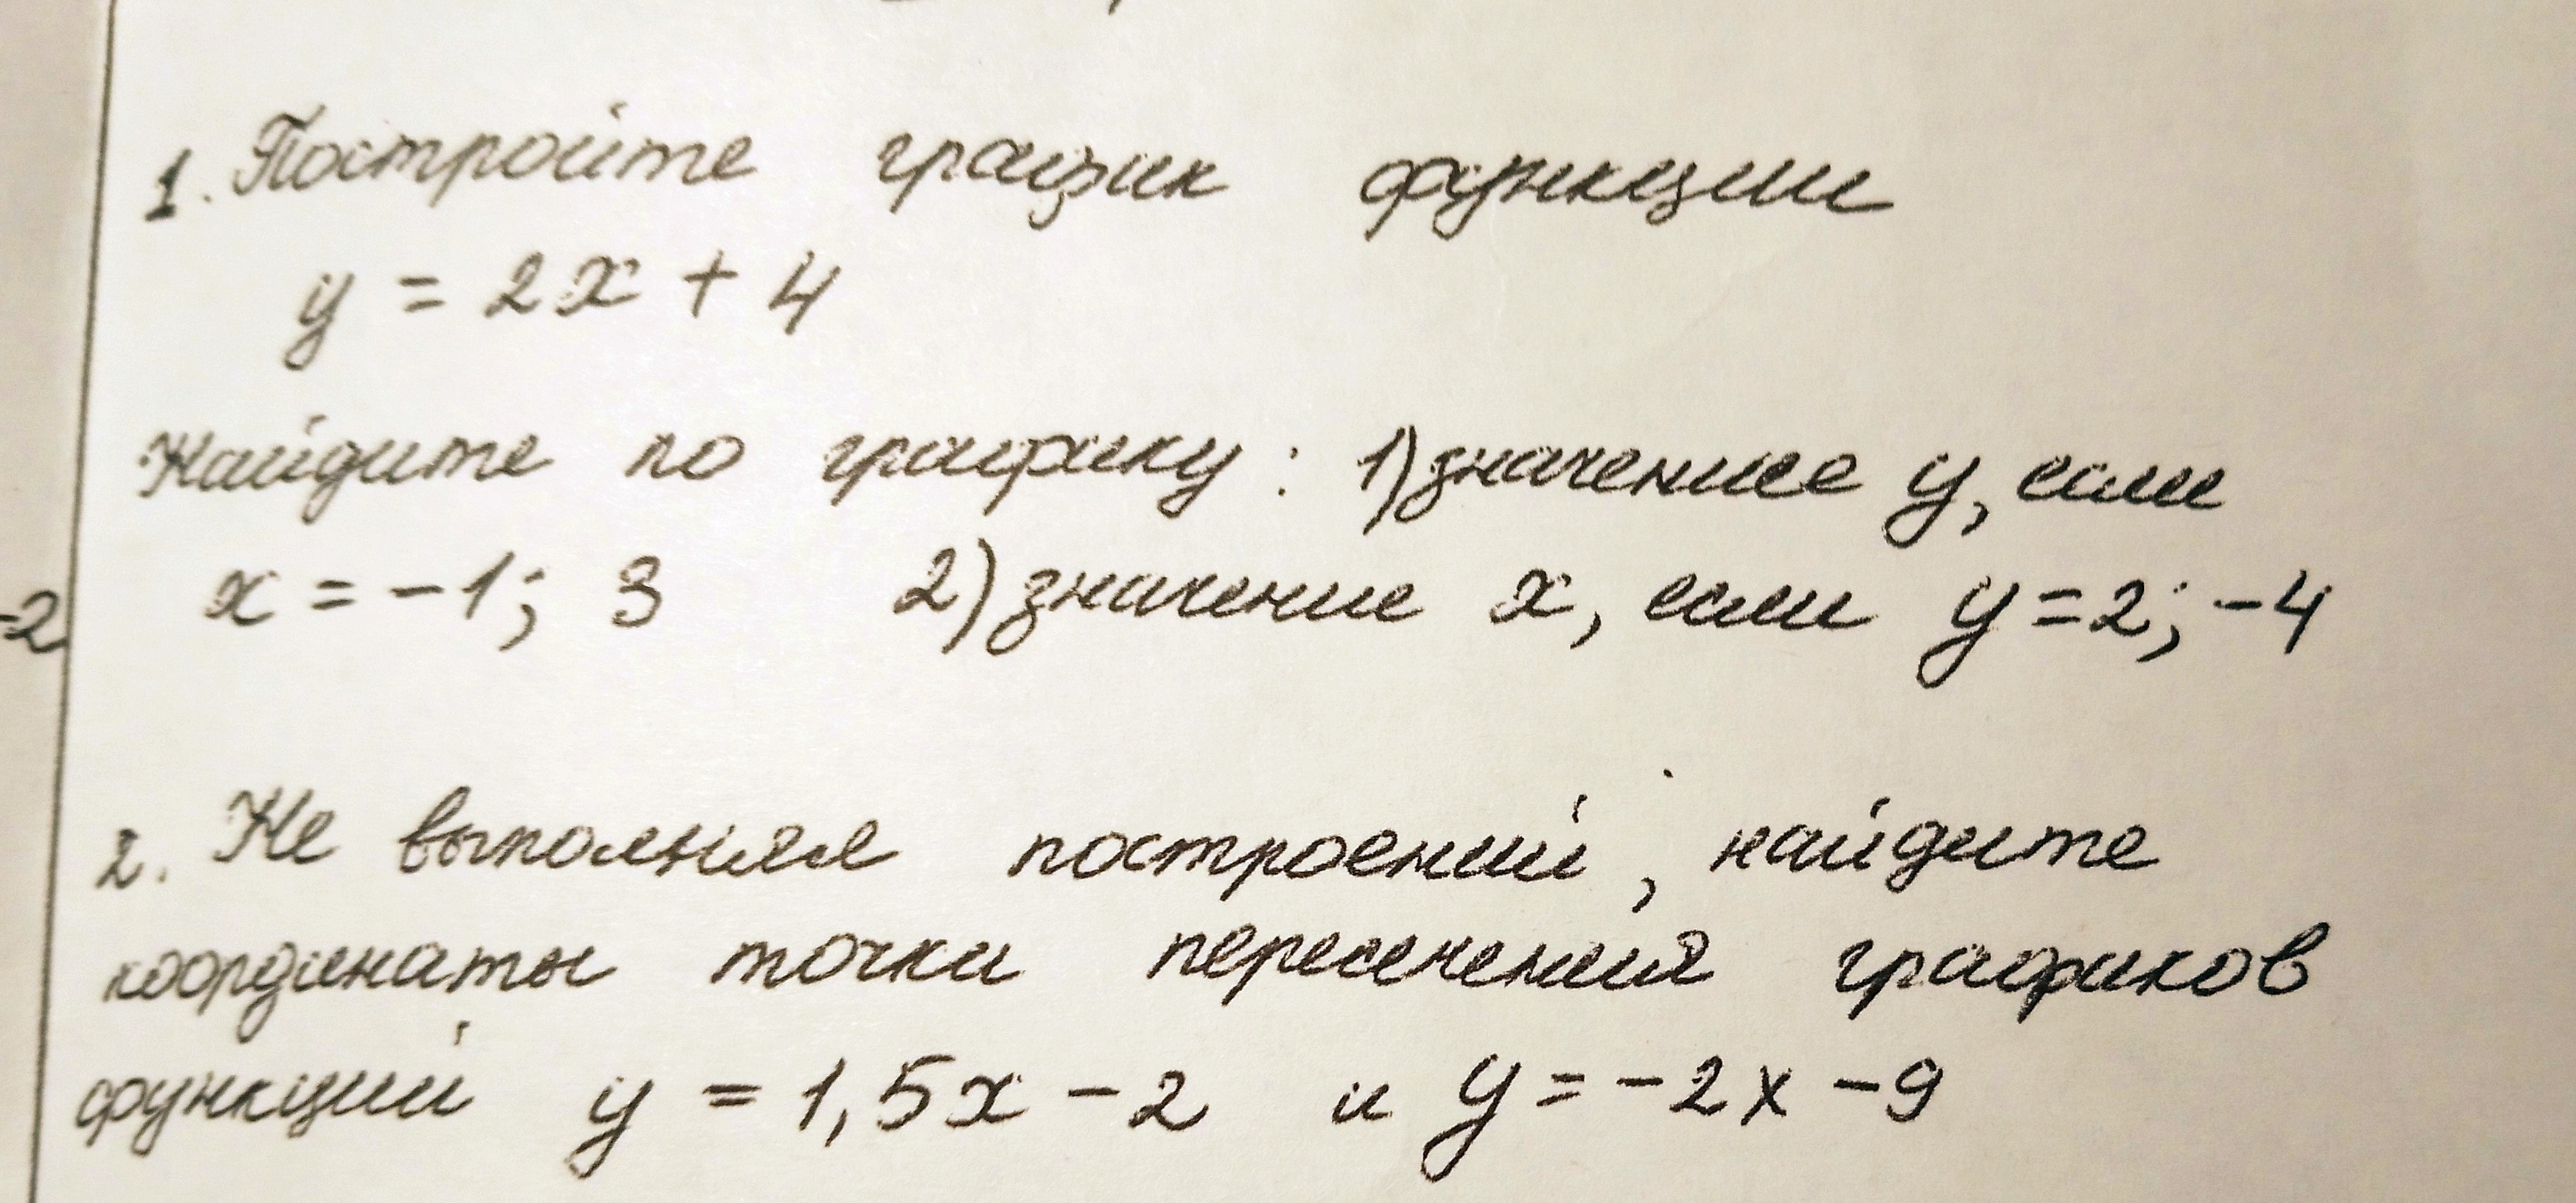 1. Постройте график функции
y = 2x + 4
Найдите по графику: 1) значение y, если
x = -1; 3 2) значение x, если y = 2; -4
-2
2. Не выполняя построений, найдите
координаты точки пересечения графиков
функций y = 1,5x - 2 и y = -2x - 9